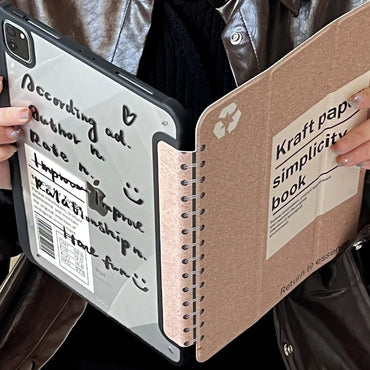 According ad.
Author n.
Rate n.
Improove Improve
Relationship n.
Have fun
Kraft pap
simplicity
book
Return to essen